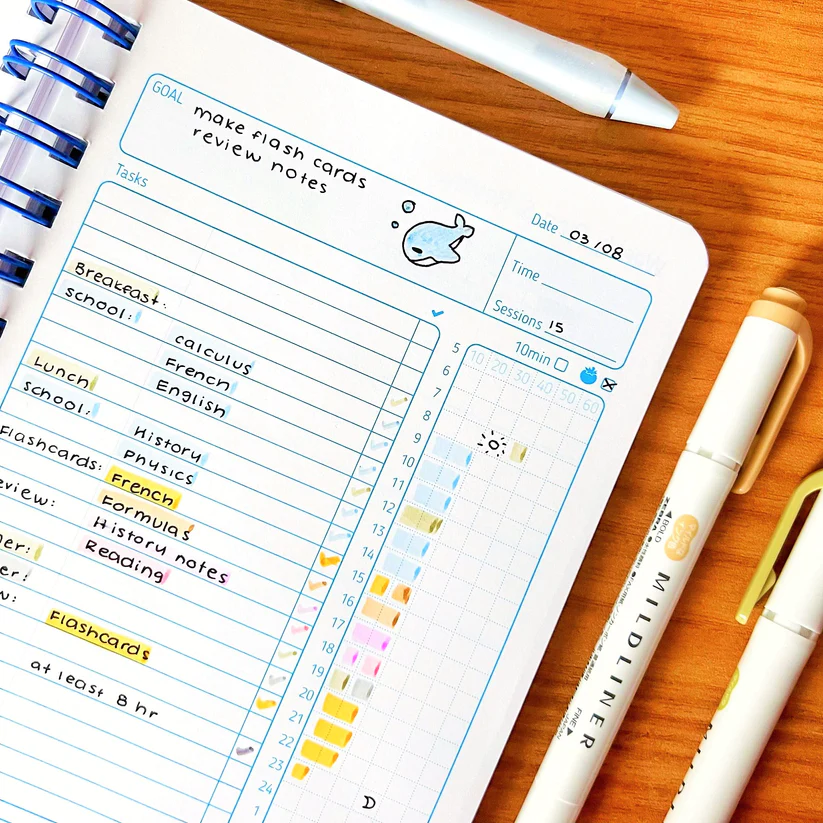 GOAL make flash cards
review notes
Tasks
Date 03/08
Time
Sessions 15
10min
10 20 30 40 50 60
Breakfast:
School:
calculus
French
English
Lunch
School:
History
Physics
Flashcards: French
Formulas
History notes
Reading
Flashcards
at least 8 hr
5
6
7
8
9
10
11
12
13
14
15
16
17
18
19
20
21
22
23
24
1
ZEBRA
BOLD
MILDLINER
FINE